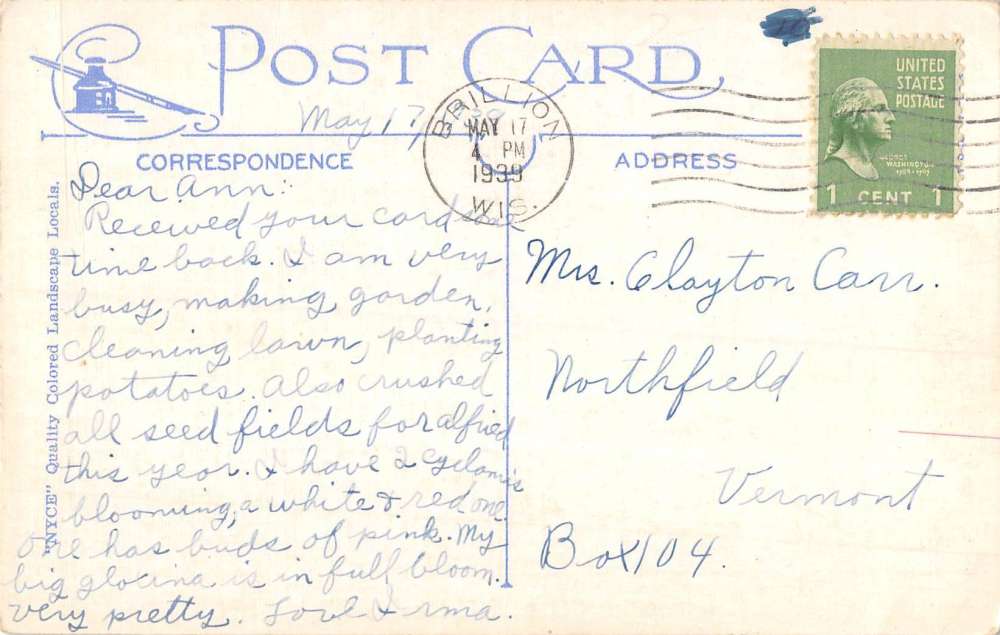 POST CARD
May 17,
BRILLION
MAY 17
4 PM
1939
WIS.
UNITED
STATES
POSTAGE
GEORGE
WASHINGTON
1789-1797
1 CENT 1
CORRESPONDENCE
ADDRESS
"NYCE" Quality Colored Landscape Locals.
Dear Ann:
Received your card
time back. I am very
busy, making garden,
cleaning lawn, planting
potatoes. Also crushed
all seed fields for Alfred
this year. I have 2 cyclamis
blooming, a white & red one.
One has buds of pink. My
big glocina is in full bloom.
Very pretty. Love Irma.
Mrs. Clayton Carr.
Northfield
Vermont
Box 104.